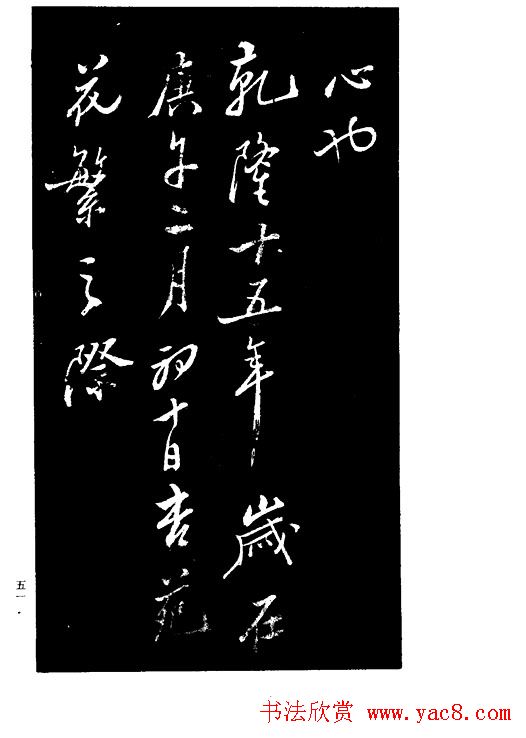 心也
乾隆十五年歲在
庚午二月初十日杏苑
花繁之際
五一
书法欣赏 www.yac8.com